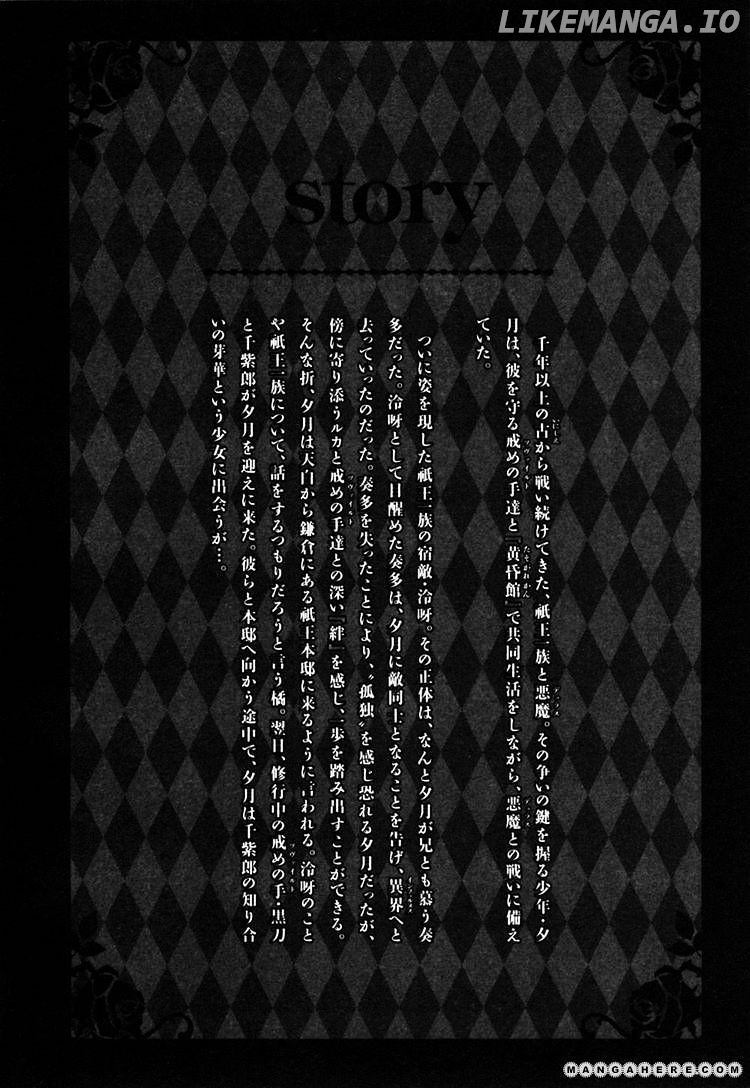 LIKEMANGA.IO
story
千年以上の古から戦い続けてきた、祇王一族と悪魔。その争いの鍵を握る少年・夕
月は、彼を守る戒めの手達と『黄昏館』で共同生活をしながら、悪魔との戦いに備え
ていた。
ついに姿を現した祇王一族の宿敵・冷呀。その正体は、なんと夕月が兄とも慕う奏
多だった。冷呀として目醒めた奏多は、夕月に敵同士となることを告げ、異界へと
去っていったのだった。奏多を失ったことにより、〝孤独〟を感じ恐れる夕月だったが、
傍に寄り添うルカと戒めの手達との深い『絆』を感じ、一歩を踏み出すことができる。
そんな折、夕月は天白から鎌倉にある祇王本邸に来るように言われる。冷呀のこと
や祇王一族について、話をするつもりだろうと言う橘。翌日、修行中の戒めの手・黒刀
と千紫郎が夕月を迎えに来た。彼らと本邸へ向かう途中で、夕月は千紫郎の知り合
いの芽華という少女に出会うが…。
MANGAHERE.COM